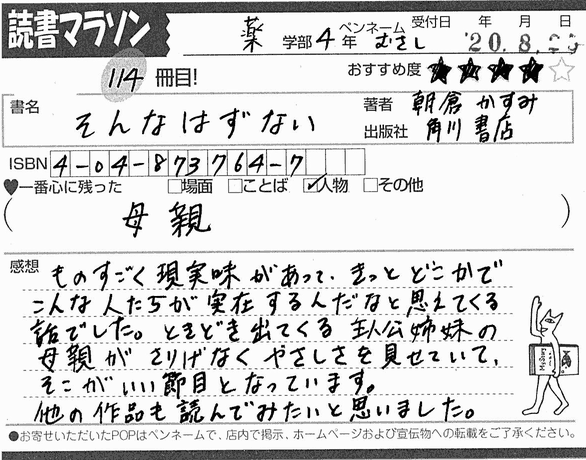 読書マラソン
薬 学部 4 年 ペンネーム むさし 受付日 年 月 日
'20.8.
114 冊目! おすすめ度 ★★★★☆
書名 そんなはずない
著者 朝倉 かすみ
出版社 角川書店
ISBN 4-04-873764-7
♥一番心に残った □場面 □ことば ☑人物 □その他
( 母親 )
感想 ものすごく現実味があって、きっとどこかで
こんな人たちが実在するんだなと思えてくる
話でした。ときどき出てくる主人公姉妹の
母親がさりげなくやさしさを見せていて、
そこがいい節目となっています。
他の作品も読んでみたいと思いました。
●お寄せいただいたPOPはペンネームで、店内で掲示、ホームページおよび宣伝物への転載をご了承ください。